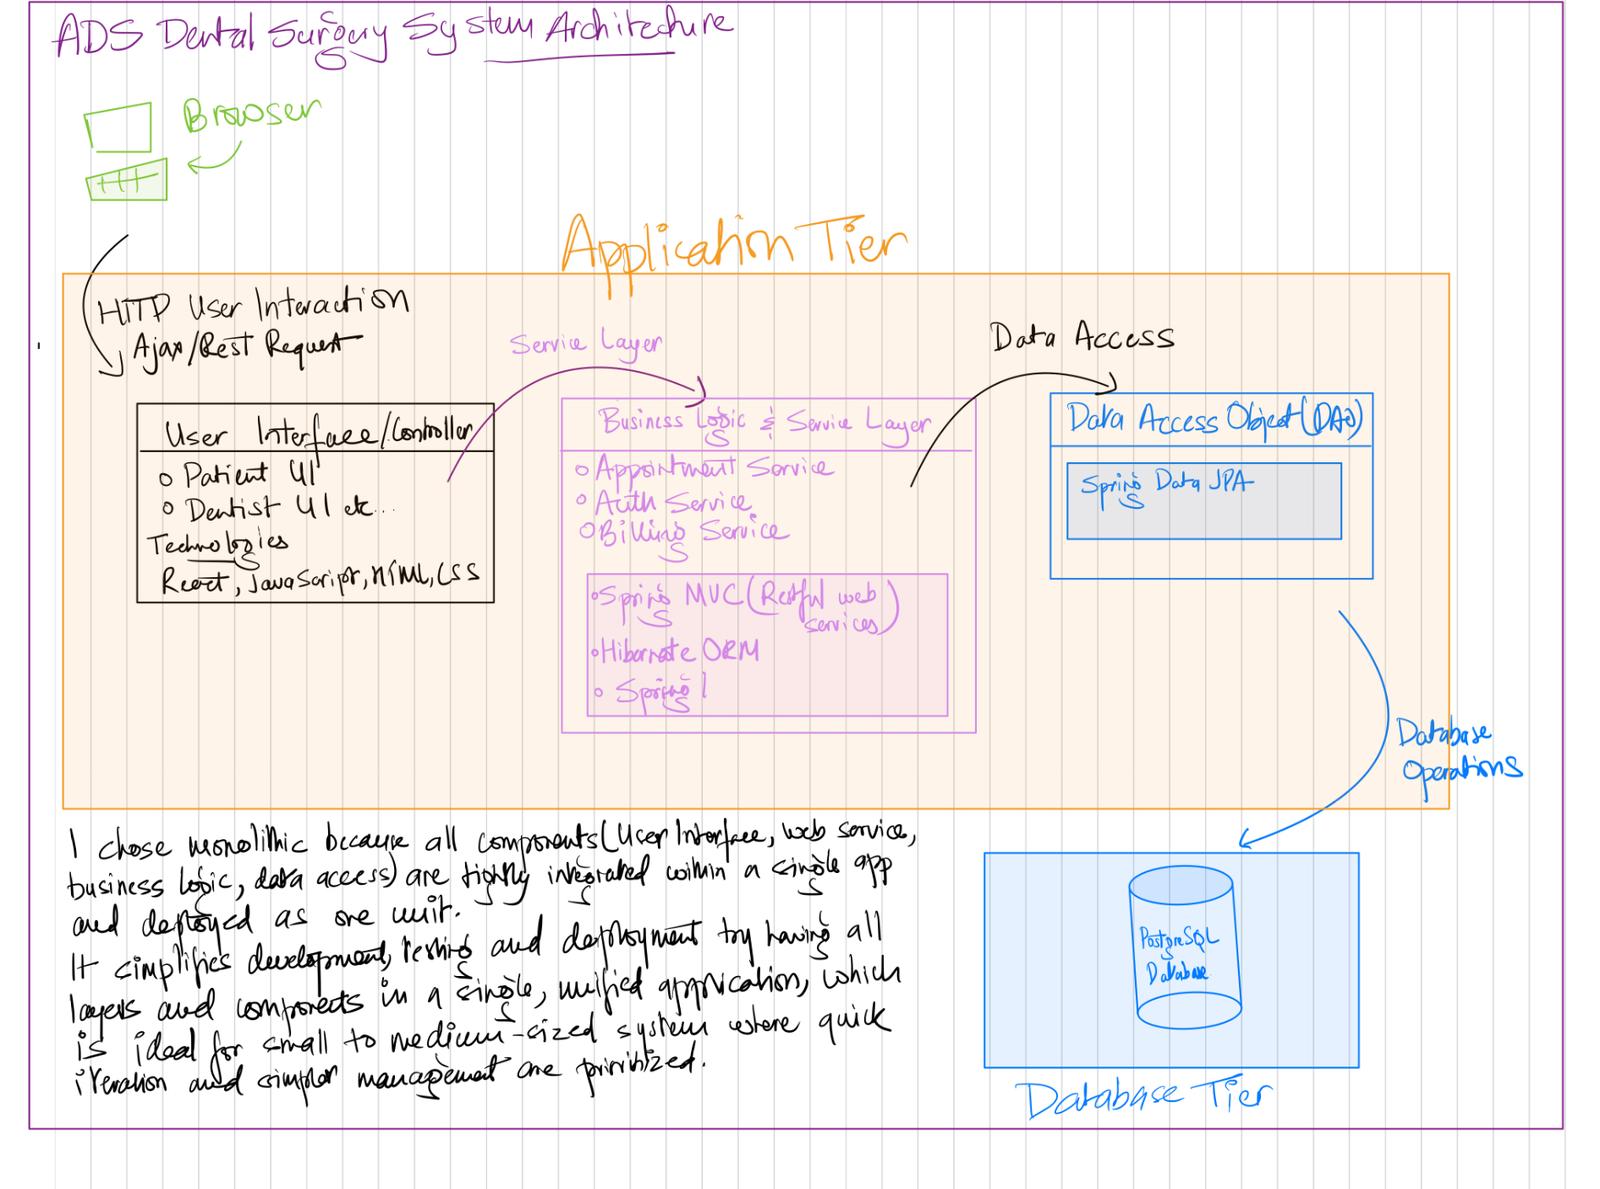 ADS Dental Surgery System Architecture
Browser
Application Tier
HTTP User Interaction
Ajax/Rest Request
Service Layer
Data Access
User Interface/Controller
Patient UI
Dentist UI etc...
Technologies
React, JavaScript, HTML, CSS
Business Logic & Service Layer
Appointment Service
Auth Service
Billing Service
Spring MVC (Restful web
services)
Hibernate ORM
Spring
Data Access Object (DAO)
Spring Data JPA
Database
Operations
I chose monolithic because all components (User Interface, web service,
business logic, data access) are tightly integrated within a single app
and deployed as one unit.
It simplifies development, testing and deployment by having all
layers and components in a single, unified application, which
is ideal for small to medium-sized system where quick
iteration and simpler management are prioritized.
PostgreSQL
Database
Database Tier